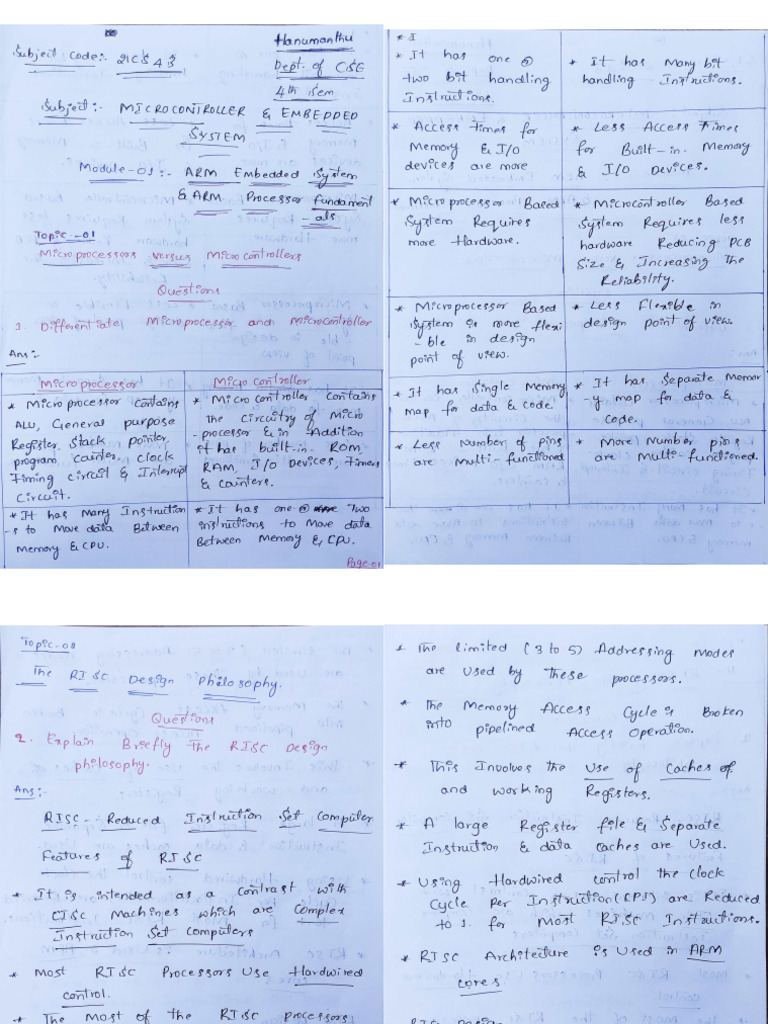 Hanumanthu
Subject Code:- 21CS43
Dept. of CSE
4th Sem
Subject:- MICROCONTROLLER & EMBEDDED
SYSTEM
Module-01:- ARM Embedded System
& ARM Processor fundament
-als
Topic-01
Microprocessors versus Microcontrollers
Questions
1. Differentiate Microprocessor and Microcontroller
Ans:-
Microprocessor
* Microprocessor contains
ALU, General purpose
Register, Stack pointer,
program counter, clock
Timing circuit & Interrupt
Circuit.
Micro controller
* Micro controller contains
The Circuitry of Micro
-processor & in Addition
it has built-in ROM,
RAM, I/O Devices, Timers
& counters.
* It has many Instruction
-s to Move data Between
Memory & CPU.
* It has one @ Two
instructions to Move data
Between Memory & CPU.
Page-01
* I
* It has one @
two bit handling
Instructions.
* It has Many bit
handling Instructions.
* Access Times for
Memory & I/O
devices are more
* Less Access Times
for Built-in Memory
& I/O Devices.
* Microprocessor Based
System Requires
more Hardware.
* Microcontroller Based
System Requires less
hardware Reducing PCB
Size & Increasing The
Reliability.
* Microprocessor Based
System is more flexi
-ble in design
point of view.
* Less Flexible in
design point of view.
* It has Single Memory
map for data & Code.
* It has Separate Memor
-y map for data &
Code.
* Less Number of pins
are Multi-functioned
* More Number pins
are Multi-functioned.
Topic-02
The RISC Design Philosophy.
Questions
2. Explain Briefly The RISC Design
philosophy.
Ans:-
RISC - Reduced Instruction Set Computer
Features of RISC
* It is intended as a contrast with
CISC Machines which are Complex
Instruction Set Computers
* Most RISC Processors Use Hardwired
control.
* The Most of the RISC processors
* The limited (3 to 5) Addressing modes
are Used by These processors.
* The Memory Access Cycle is Broken
into pipelined Access Operation.
* This Involves the Use of Caches of
and working Registers.
* A large Register file & Separate
Instruction & data Caches are Used.
* Using Hardwired control the Clock
Cycle per Instruction (CPI) are Reduced
to 1. for Most RISC Instructions.
* RISC Architecture is Used in ARM
cores.